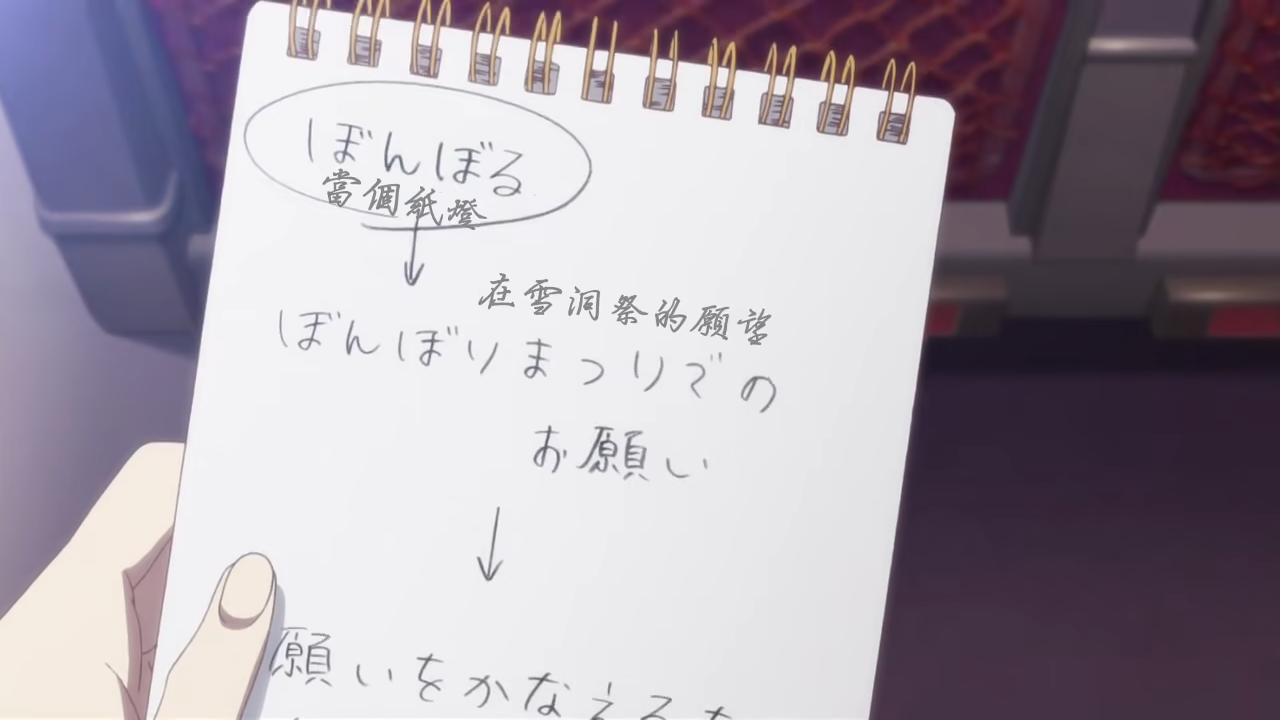 ぼんぼる
當個紙燈
在雪洞祭的願望
ぼんぼりまつりでの
お願い
願いをかなえる